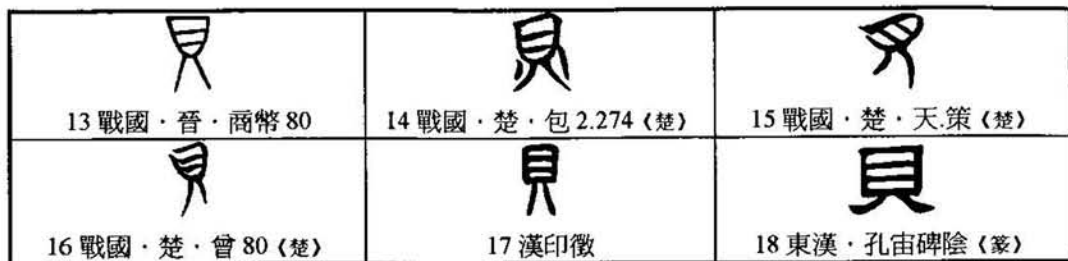 貝 貝 貝
13 戰國．晉．商幣 80 14 戰國．楚．包 2.274《楚》 15 戰國．楚．天.策《楚》
貝 貝 貝
16 戰國．楚．曾 80《楚》 17 漢印徵 18 東漢．孔宙碑陰《篆》